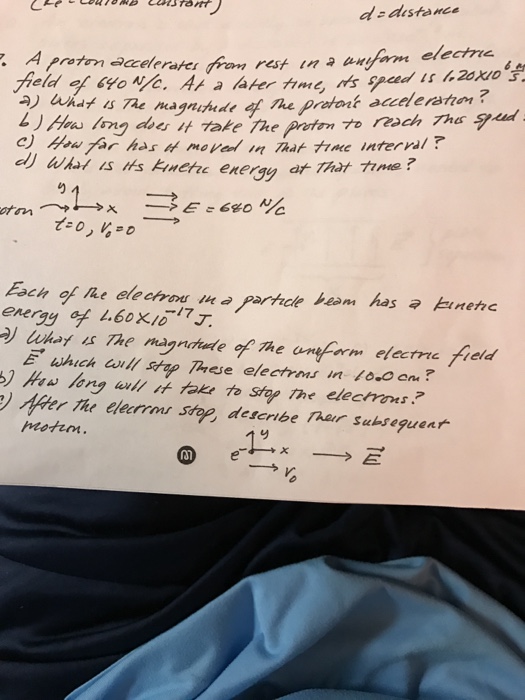 (ke = Coulomb Constant)
d = distance
7. A proton accelerates from rest in a uniform electric
field of 640 N/C. At a later time, its speed is 1.20X10⁶ m/s.
a) What is The magnitude of The proton's acceleration?
b) How long does it take The proton to reach This speed?
c) How far has it moved in That time interval?
d) What is its Kinetic energy at That time?
y
x
E = 640 N/C
t=0, V₀=0
Each of The electrons in a particle beam has a Kinetic
energy of 1.60X10⁻¹⁷ J.
a) What is The magnitude of The uniform electric field
E⃗ which will stop These electrons in 10.0 cm?
b) How long will it take to stop The electrons?
c) After The electrons stop, describe Their subsequent
motion.
y
e⁻ x → E⃗
→ V₀